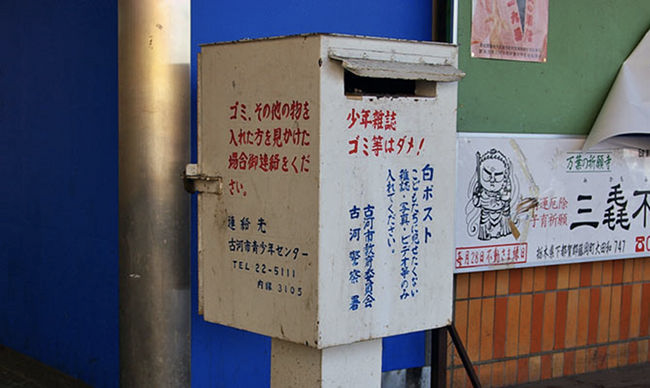 ゴミ、その他の物を
入れた方を見かけた
場合御連絡をくだ
さい。
連絡先
古河市青少年センター
TEL 22-5111
内線 3105
少年雑誌
ゴミ等はダメ!
白ポスト
こどもたちに見せたくない
雑誌・写真・ビデオ等のみ
入れてください。
古河市教育委員会
古河警察署
万葉の祈願寺
三毳不
厄除
子育祈願
毎月28日不動さま縁日
栃木県下都賀郡藤岡町大田和747